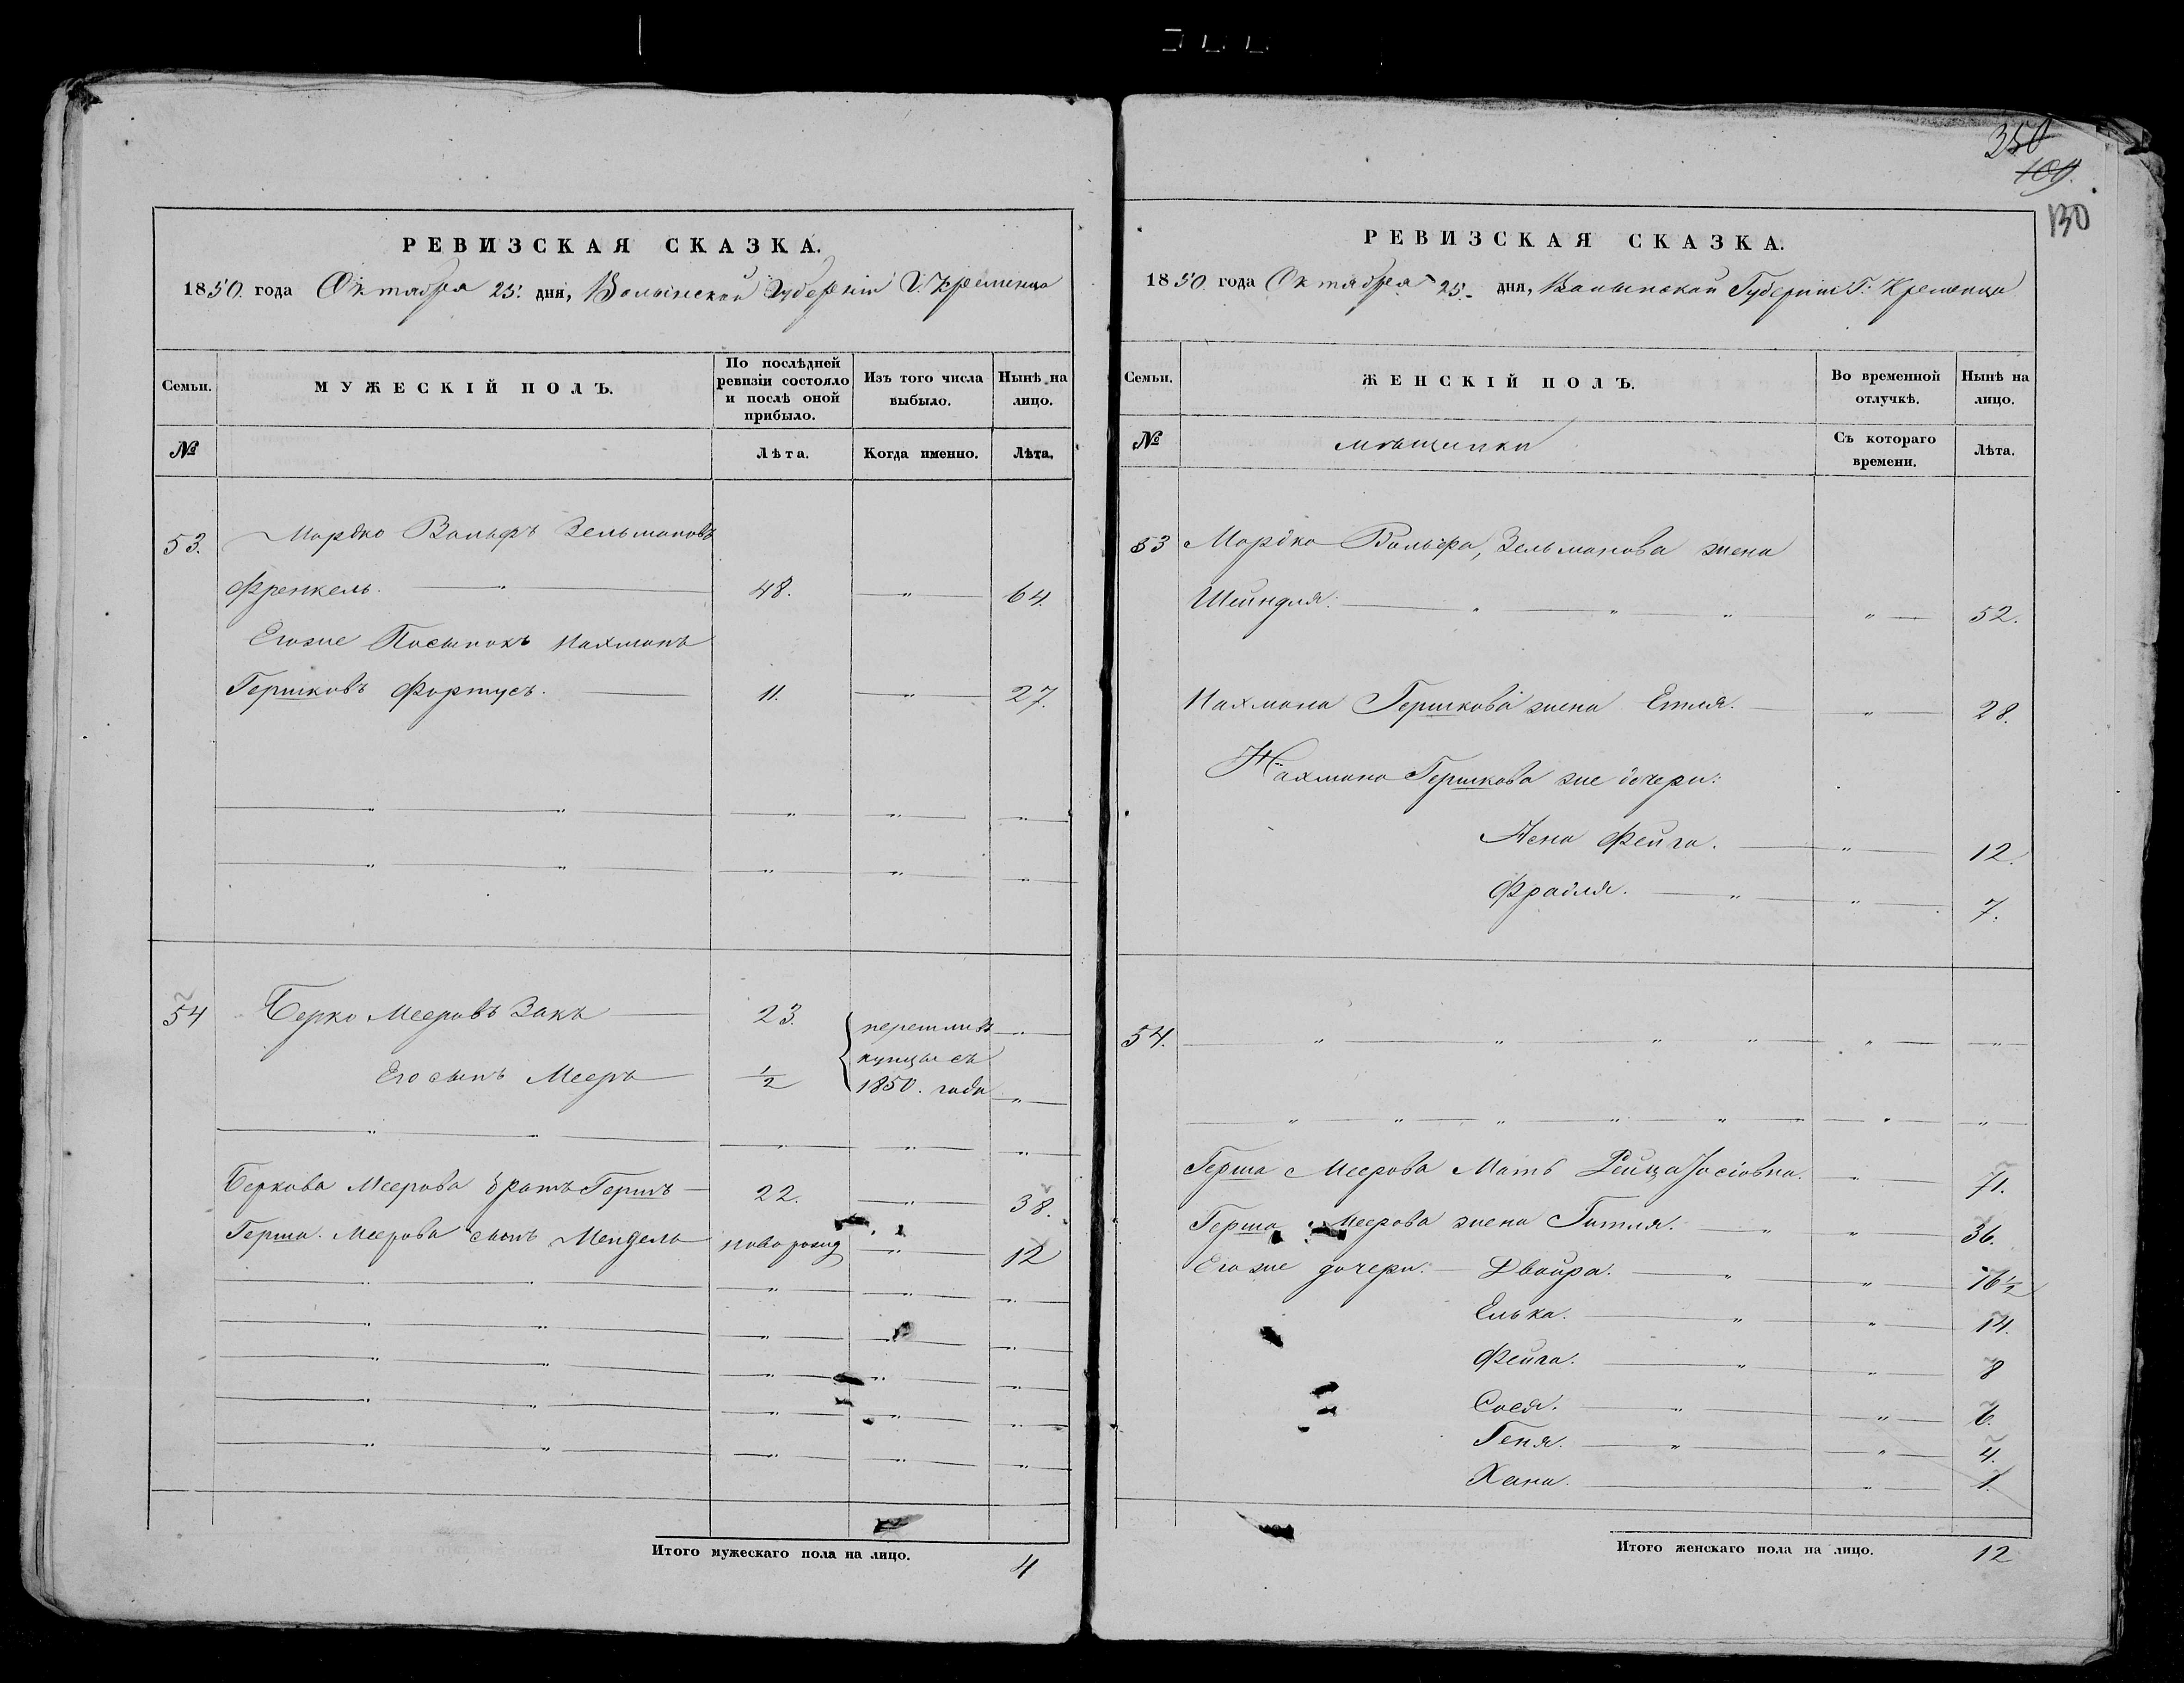 350
109.
130
РЕВИЗСКАЯ СКАЗКА.
1850. года Октября 25. дня, Волынской Губерніи Г. Кременца
Семьи.
МУЖЕСКІЙ ПОЛЪ.
По послѣдней ревизіи состояло и послѣ оной прибыло.
Изъ того числа выбыло.
Нынѣ на лицо.
№
Лѣта.
Когда именно.
Лѣта.
53. Мордко Вольфъ Зельмановъ
Френкель. — " — 48. — " — 64.
Егоже Посынокъ Нахманъ
Гершковъ Фортусъ. — 11. — " — 27.
54 Берко Мееровъ Закъ — 23. перешли въ — " —
купцы съ
Его сынъ Мееръ — 1/2 1850. года — " —
Беркова Меерова братъ Гершъ — 22. — " — 38.
Герша. Меерова сынъ Мендель новорожд — " — 12
Итого мужескаго пола на лицо. 4
РЕВИЗСКАЯ СКАЗКА.
1850 года Октября 25. дня, Волынской Губерніи Г. Кременца
Семьи.
ЖЕНСКІЙ ПОЛЪ.
Во временной отлучкѣ.
Нынѣ на лицо.
№
мѣщанки
Съ котораго времени.
Лѣта.
53 Мордка Вольфа, Зельманова жена
Шейндля. — " — " — " — " — 52.
Нахмана Гершкова жена Етля. — " — 28.
Нахмана Гершкова же дочери:
Фейга. — " — 12.
Фрадля. — " — " — 7.
54. — " — " — " — " — " — " —
Герша Меерова Мать Рейца Іосіовна. — " — 71.
Герша Меерова жена Гитля. — " — " — 36.
Его же дочери. — Двойра. — " — " — 16 1/2
Елька. — " — " — 14.
Фейга. — " — " — 8
Сося. — " — " — 6.
Геня. — " — " — 4.
Хана. — " — 1.
Итого женскаго пола на лицо. 12